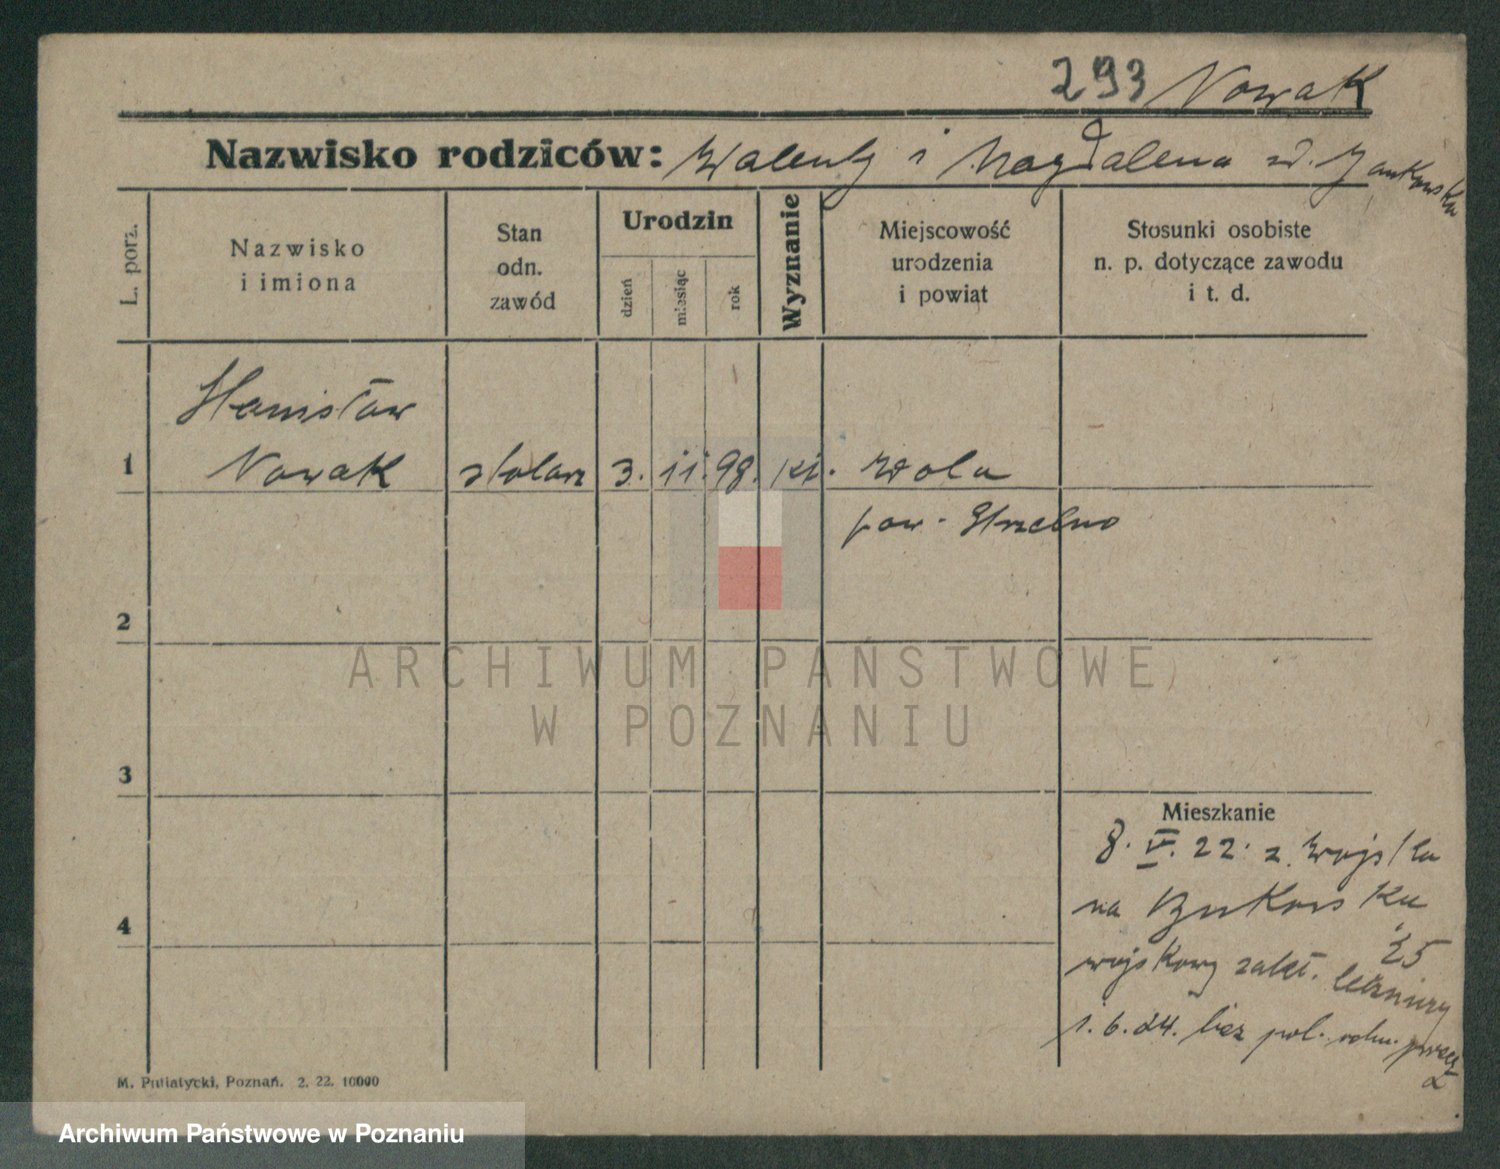 293 Nowak
Nazwisko rodziców: Walenty i Magdalena z d. Jankowska
L. porz.
Nazwisko
i imiona
Stan
odn.
zawód
Urodzin
dzień
miesiąc
rok
Wyznanie
Miejscowość
urodzenia
i powiat
Stosunki osobiste
n. p. dotyczące zawodu
i t. d.
Stanisław
1 Nowak stolarz 3. 11. 98. kt. Wola
pow. Strzelno
2
3
4
Mieszkanie
8. V. 22. z wojska
na Bukowska
25
wojskowy zakł. leczniczy
1. 6. 24. bez pol. odm. precz
M. Putiatycki, Poznań. 2. 22. 10000
ARCHIWUM PAŃSTWOWE
W POZNANIU
Archiwum Państwowe w Poznaniu